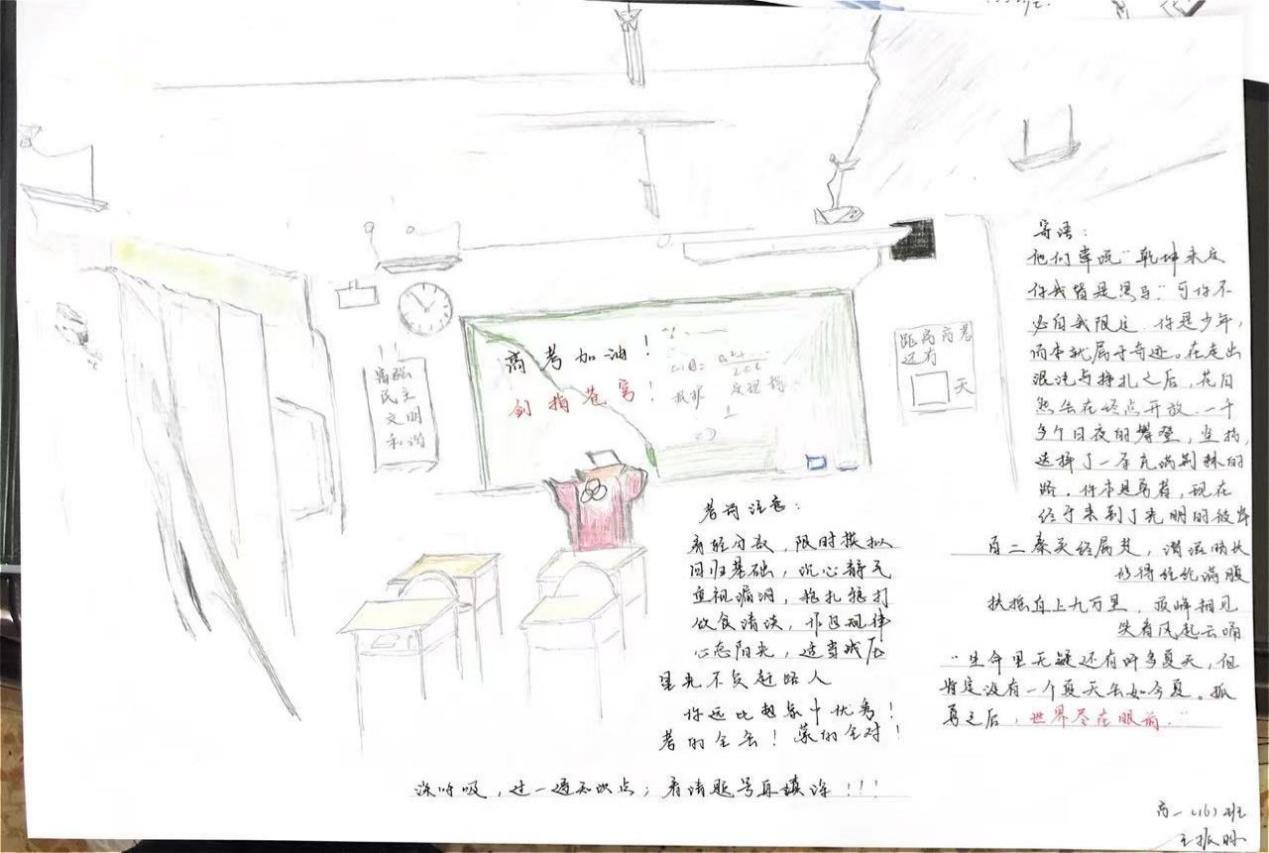 富强
民主
文明
和谐
高考加油！
剑指苍穹！
距离高考
还有
天
寄语：
他们常说“乾坤未定
你我皆是黑马”可你不
必自我限定.你是少年，
而本就属于奇迹。在走出
混沌与挣扎之后，花自
然会在终点开放.一千
多个日夜的攀登，坐标，
选择了一条充满荆棘的
路.你本是勇者，现在
终于来到了光明的彼岸
百二秦关终属楚，潜滋暗长
换得经纶满腹
扶摇直上九万里，顶峰相见
笑看风起云涌
“生命里无疑还有许多夏天，但
肯定没有一个夏天会如今夏。孤
勇之后，世界尽在眼前.”
考前注意：
弃分数，限时模拟
回归基础，沉心静气
重视漏洞，稳扎稳打
饮食清淡，作息规律
心态阳光，适当减压
星光不负赶路人
你远比想象中优秀！
考的全会！蒙的全对！
深呼吸，过一遍知识点；看清题号再填涂！！！
高一（16）班